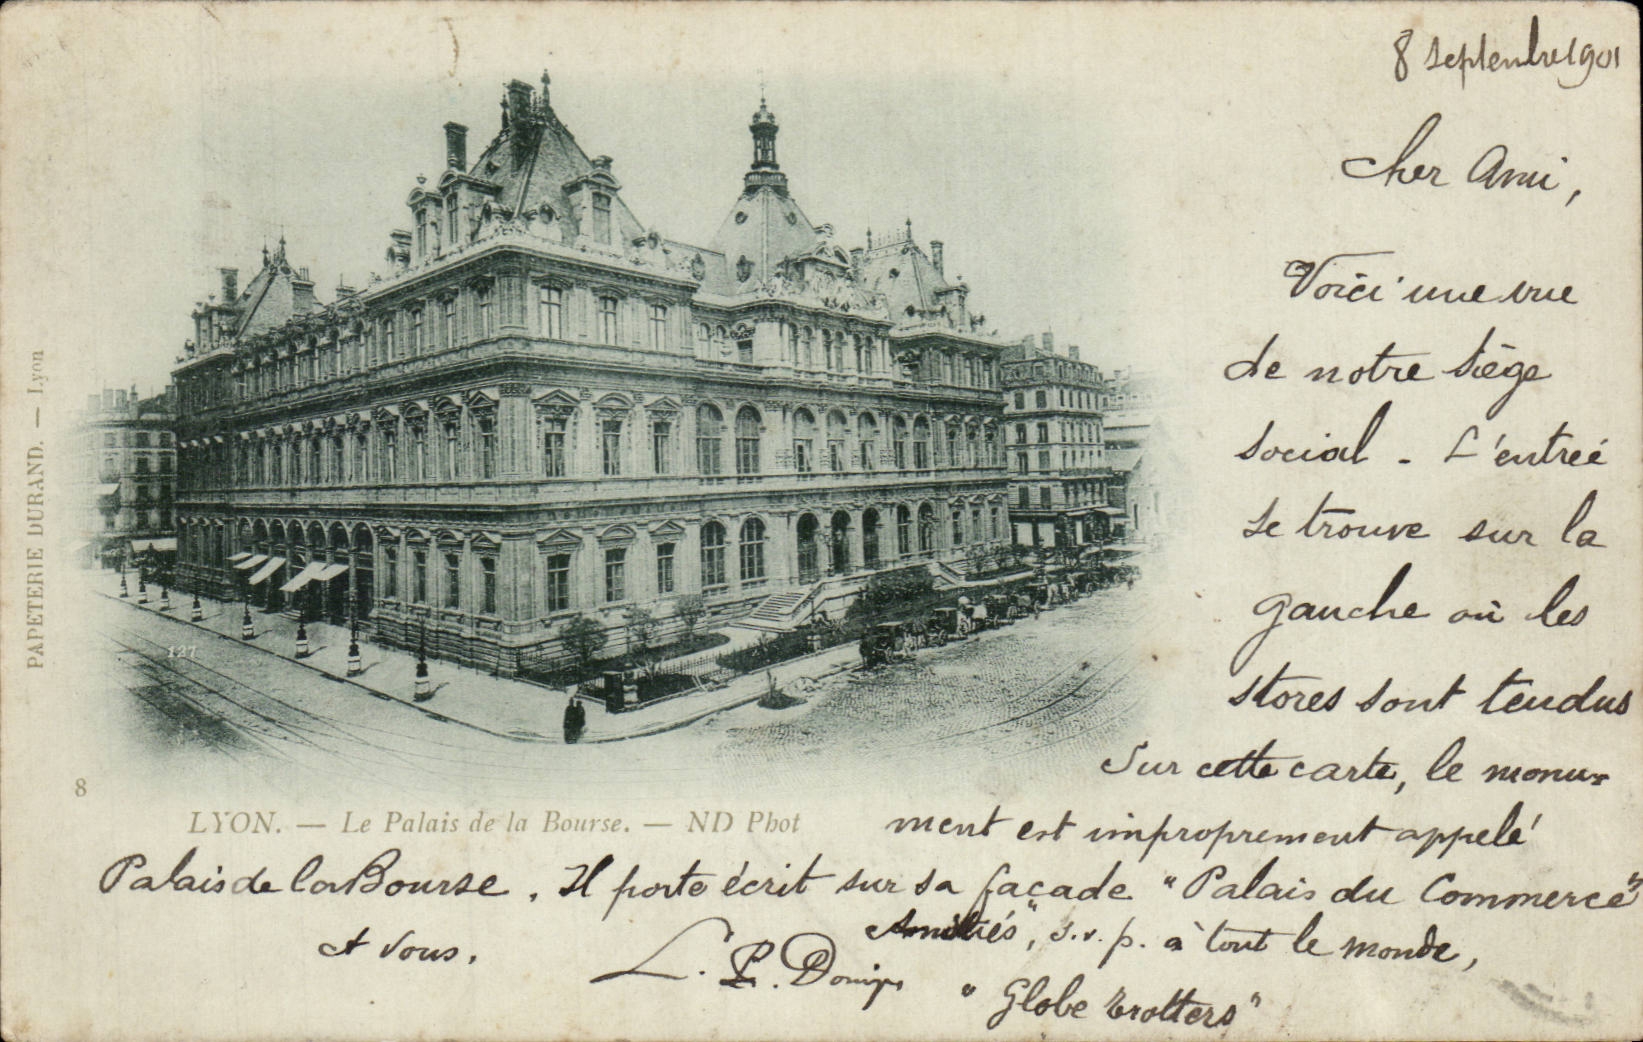 8 septembre 1901
Cher Ami,
Voici une vue
de notre siège
social - L'entrée
se trouve sur la
gauche où les
stores sont tendus
sur cette carte, le monu-
ment est improprement appelé
Palais de la Bourse. Il porte écrit sur sa façade "Palais du Commerce"
Amitiés, s.v.p. à tout le monde,
et vous.
"Globe trotters"
PAPETERIE DURAND. — Lyon
127
8
LYON. — Le Palais de la Bourse. — ND Phot